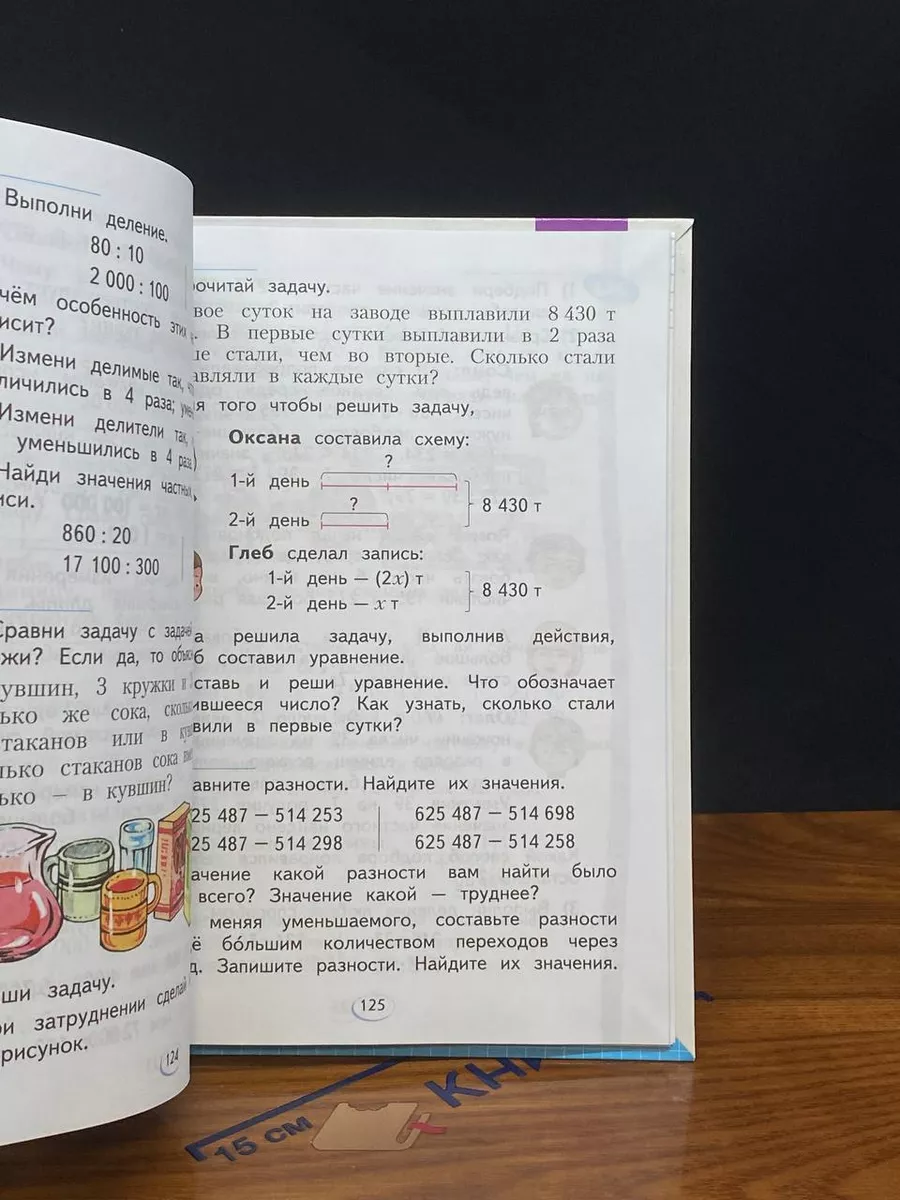 Выполни деление.
80 : 10
2 000 : 100
чём особенность этих
исит?
Измени делимые так,
личились в 4 раза;
Измени делители так,
уменьшились в 4 раза
Найди значения частных
иси.
860 : 20
17 100 : 300
Сравни задачу с задачей
жи? Если да, то
увшин, 3 кружки и
ько же сока,
таканов или в
лько стаканов сока
ько — в кувшин?
ши задачу.
ри затруднении сделай
рисунок.
124
очитай задачу.
вое суток на заводе выплавили 8 430 т
В первые сутки выплавили в 2 раза
ше стали, чем во вторые. Сколько стали
авляли в каждые сутки?
я того чтобы решить задачу,
Оксана составила схему:
?
1-й день
?
2-й день
8 430 т
Глеб сделал запись:
1-й день — (2x) т
2-й день — x т
8 430 т
а решила задачу, выполнив действия,
б составил уравнение.
ставь и реши уравнение. Что обозначает
ившееся число? Как узнать, сколько стали
авили в первые сутки?
авните разности. Найдите их значения.
25 487 − 514 253 625 487 − 514 698
25 487 − 514 298 625 487 − 514 258
ачение какой разности вам найти было
всего? Значение какой — труднее?
меняя уменьшаемого, составьте разности
ё бо́льшим количеством переходов через
д. Запишите разности. Найдите их значения.
125
15 см
КНИ